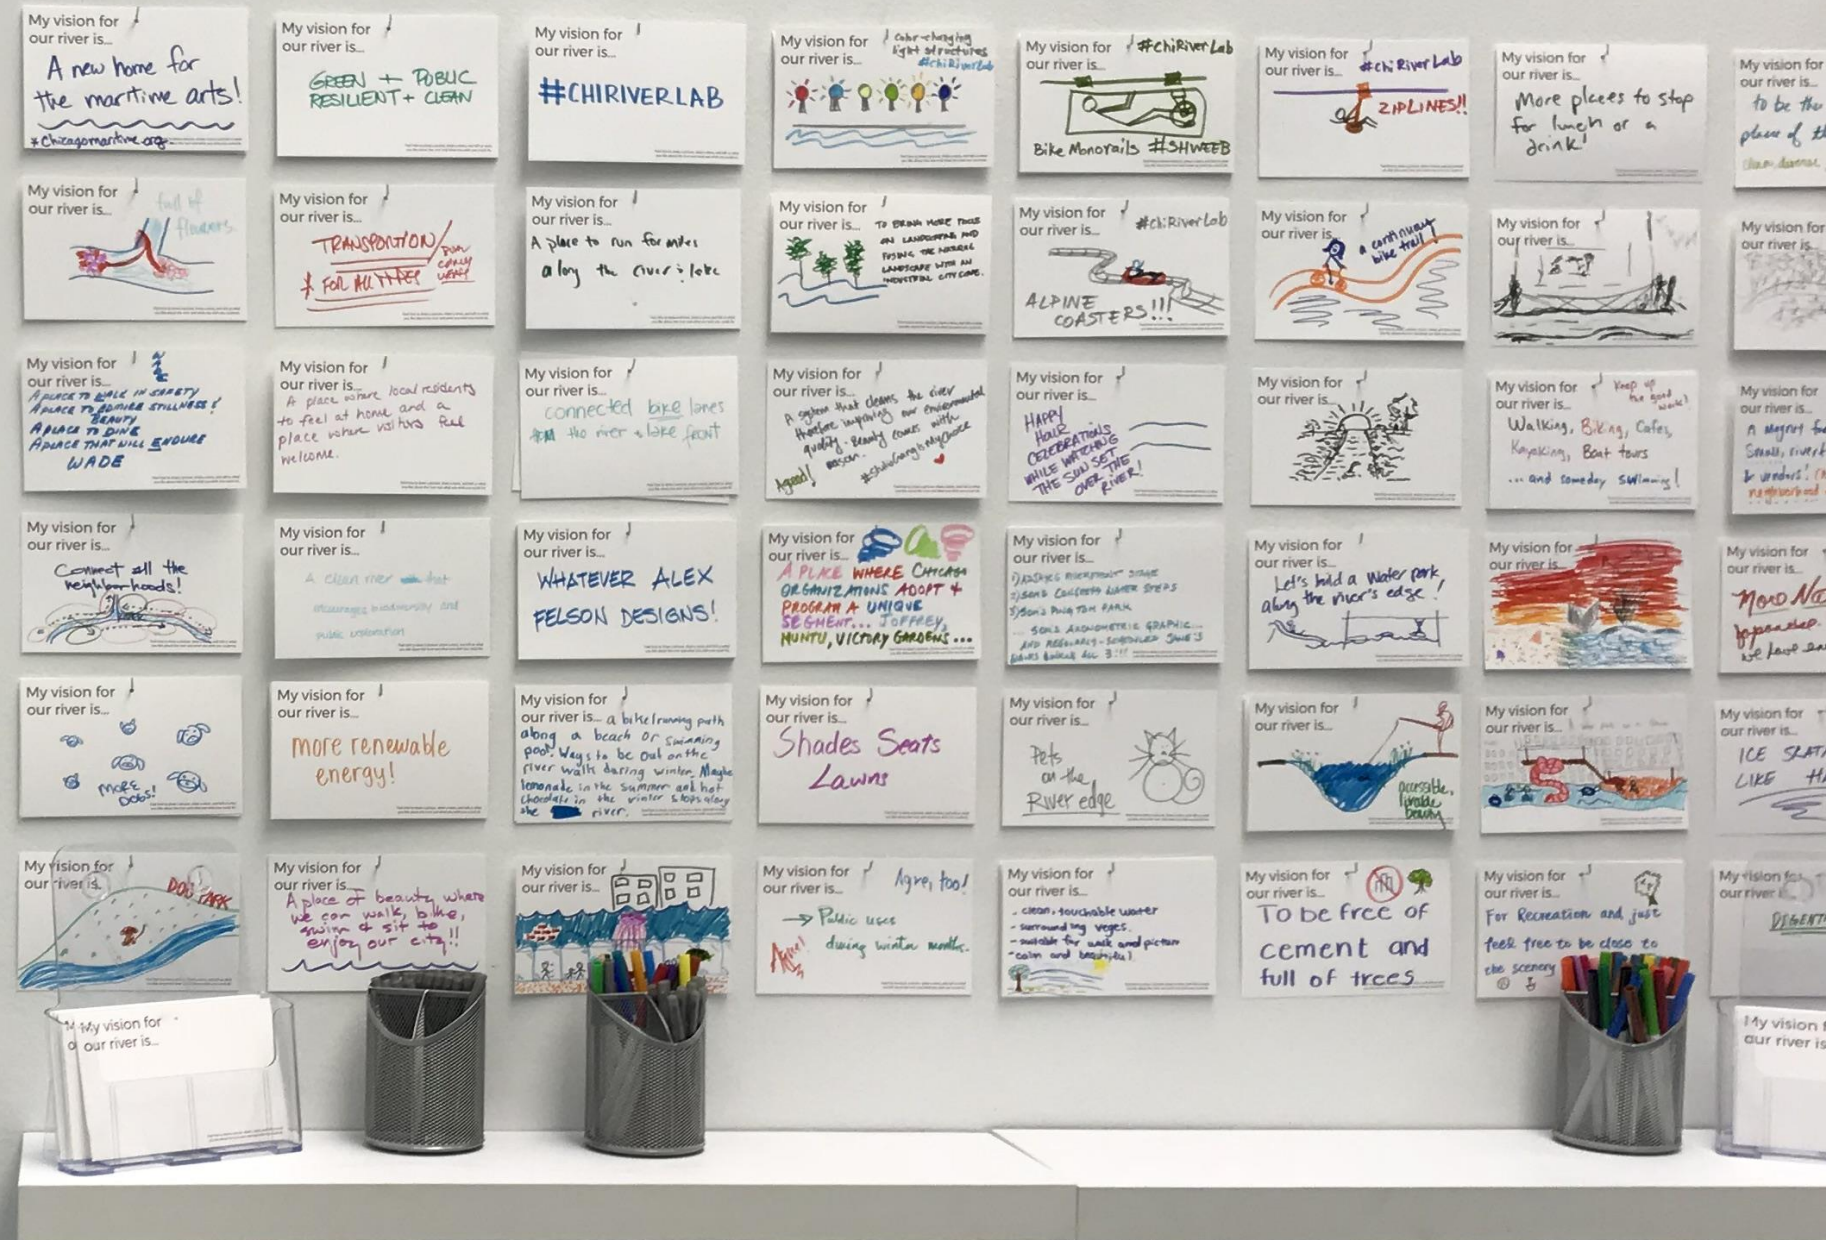 My vision for
our river is...
A new home for
the maritime arts!
*chicagomaritime.org
My vision for
our river is...
GREEN + PUBLIC
RESILIENT + CLEAN
My vision for
our river is...
#CHIRIVERLAB
My vision for
our river is...
color-changing
light structures
#chiRiverLab
My vision for
our river is...
#chiRiverLab
Bike Monorails #SHWEEB
My vision for
our river is...
#chiRiverLab
ZIPLINES!!
My vision for
our river is...
More places to stop
for lunch or a
drink!
My vision for
our river is...
to be the
place of
My vision for
our river is...
full of
flowers
My vision for
our river is...
TRANSPORTION
* FOR ALL TYPES
My vision for
our river is...
A place to run for miles
along the river & lake
My vision for
our river is...
TO BRING MORE FOCUS
ON LANDSCAPING AND
FUSING THE NATURAL
LANDSCAPE WITH AN
INDUSTRIAL CITYSCAPE.
My vision for
our river is...
#chiRiverLab
ALPINE
COASTERS!!!
My vision for
our river is...
a continuous
bike trail!
My vision for
our river is...
My vision for
our river is...
My vision for
our river is...
A PLACE TO WALK IN SAFETY
A PLACE TO ADMIRE STILLNESS!
BEAUTY
A PLACE TO DINE
A PLACE THAT WILL ENDURE
WADE
My vision for
our river is...
A place where local residents
to feel at home and a
place where visitors feel
welcome.
My vision for
our river is...
connected bike lanes
the river + lake front
My vision for
our river is...
A system that cleans the river
therefore improving our environmental
quality. Beauty comes with
reason. #StudioGangIsMyChoice
Agreed!
My vision for
our river is...
HAPPY
HOUR
CELEBRATIONS
WHILE WATCHING
THE SUN SET
OVER THE
RIVER!
My vision for
our river is...
My vision for
our river is...
Keep up
the good
work!
Walking, Biking, Cafes,
Kayaking, Boat tours
... and someday swimming!
My vision for
our river is...
A magnet
Small, river
& vendors!
neighborhood
My vision for
our river is...
Connect all the
neighborhoods!
My vision for
our river is...
A clean river that
encourages biodiversity and
public
My vision for
our river is...
WHATEVER ALEX
FELSON DESIGNS!
My vision for
our river is...
A PLACE WHERE CHICAGO
ORGANIZATIONS ADOPT +
PROGRAM A UNIQUE
SEGMENT... JOFFREY,
MUNTU, VICTORY GARDENS...
My vision for
our river is...
My vision for
our river is...
Let's build a water park
along the river's edge!
My vision for
our river is...
My vision for
our river is...
More
we love
My vision for
our river is...
MORE
DOGS!
My vision for
our river is...
more renewable
energy!
My vision for
our river is... a bike/running path
along a beach or swimming
pool. Ways to be out on the
river walk during winter. Maybe
lemonade in the summer and hot
chocolate in the winter stops along
the river.
My vision for
our river is...
Shades Seats
Lawns
My vision for
our river is...
Pets
on the
River edge
My vision for
our river is...
accessible,
livable
beauty
My vision for
our river is...
My vision for
our river is...
ICE
LIKE
My vision for
our river is...
DOG PARK
My vision for
our river is...
A place of beauty where
we can walk, bike,
swim & sit to
enjoy our city!!
My vision for
our river is...
My vision for
our river is...
Agree, too!
→ Public uses
during winter months.
Agree!
My vision for
our river is...
- clean, touchable water
- surrounding veges.
- suitable for walk and picture
- calm and beautiful
My vision for
our river is...
To be free of
cement and
full of trees
My vision for
our river is...
For Recreation and just
feel free to be close to
the scenery
My vision for
our river
My vision for
our river is...
My vision
our river is